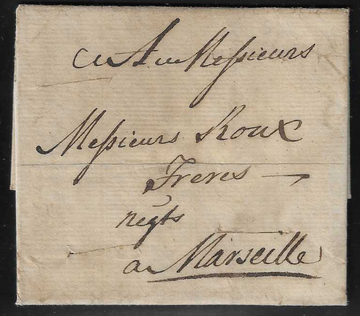 A Messieurs
Messieurs Roux
Freres
negts
a Marseille